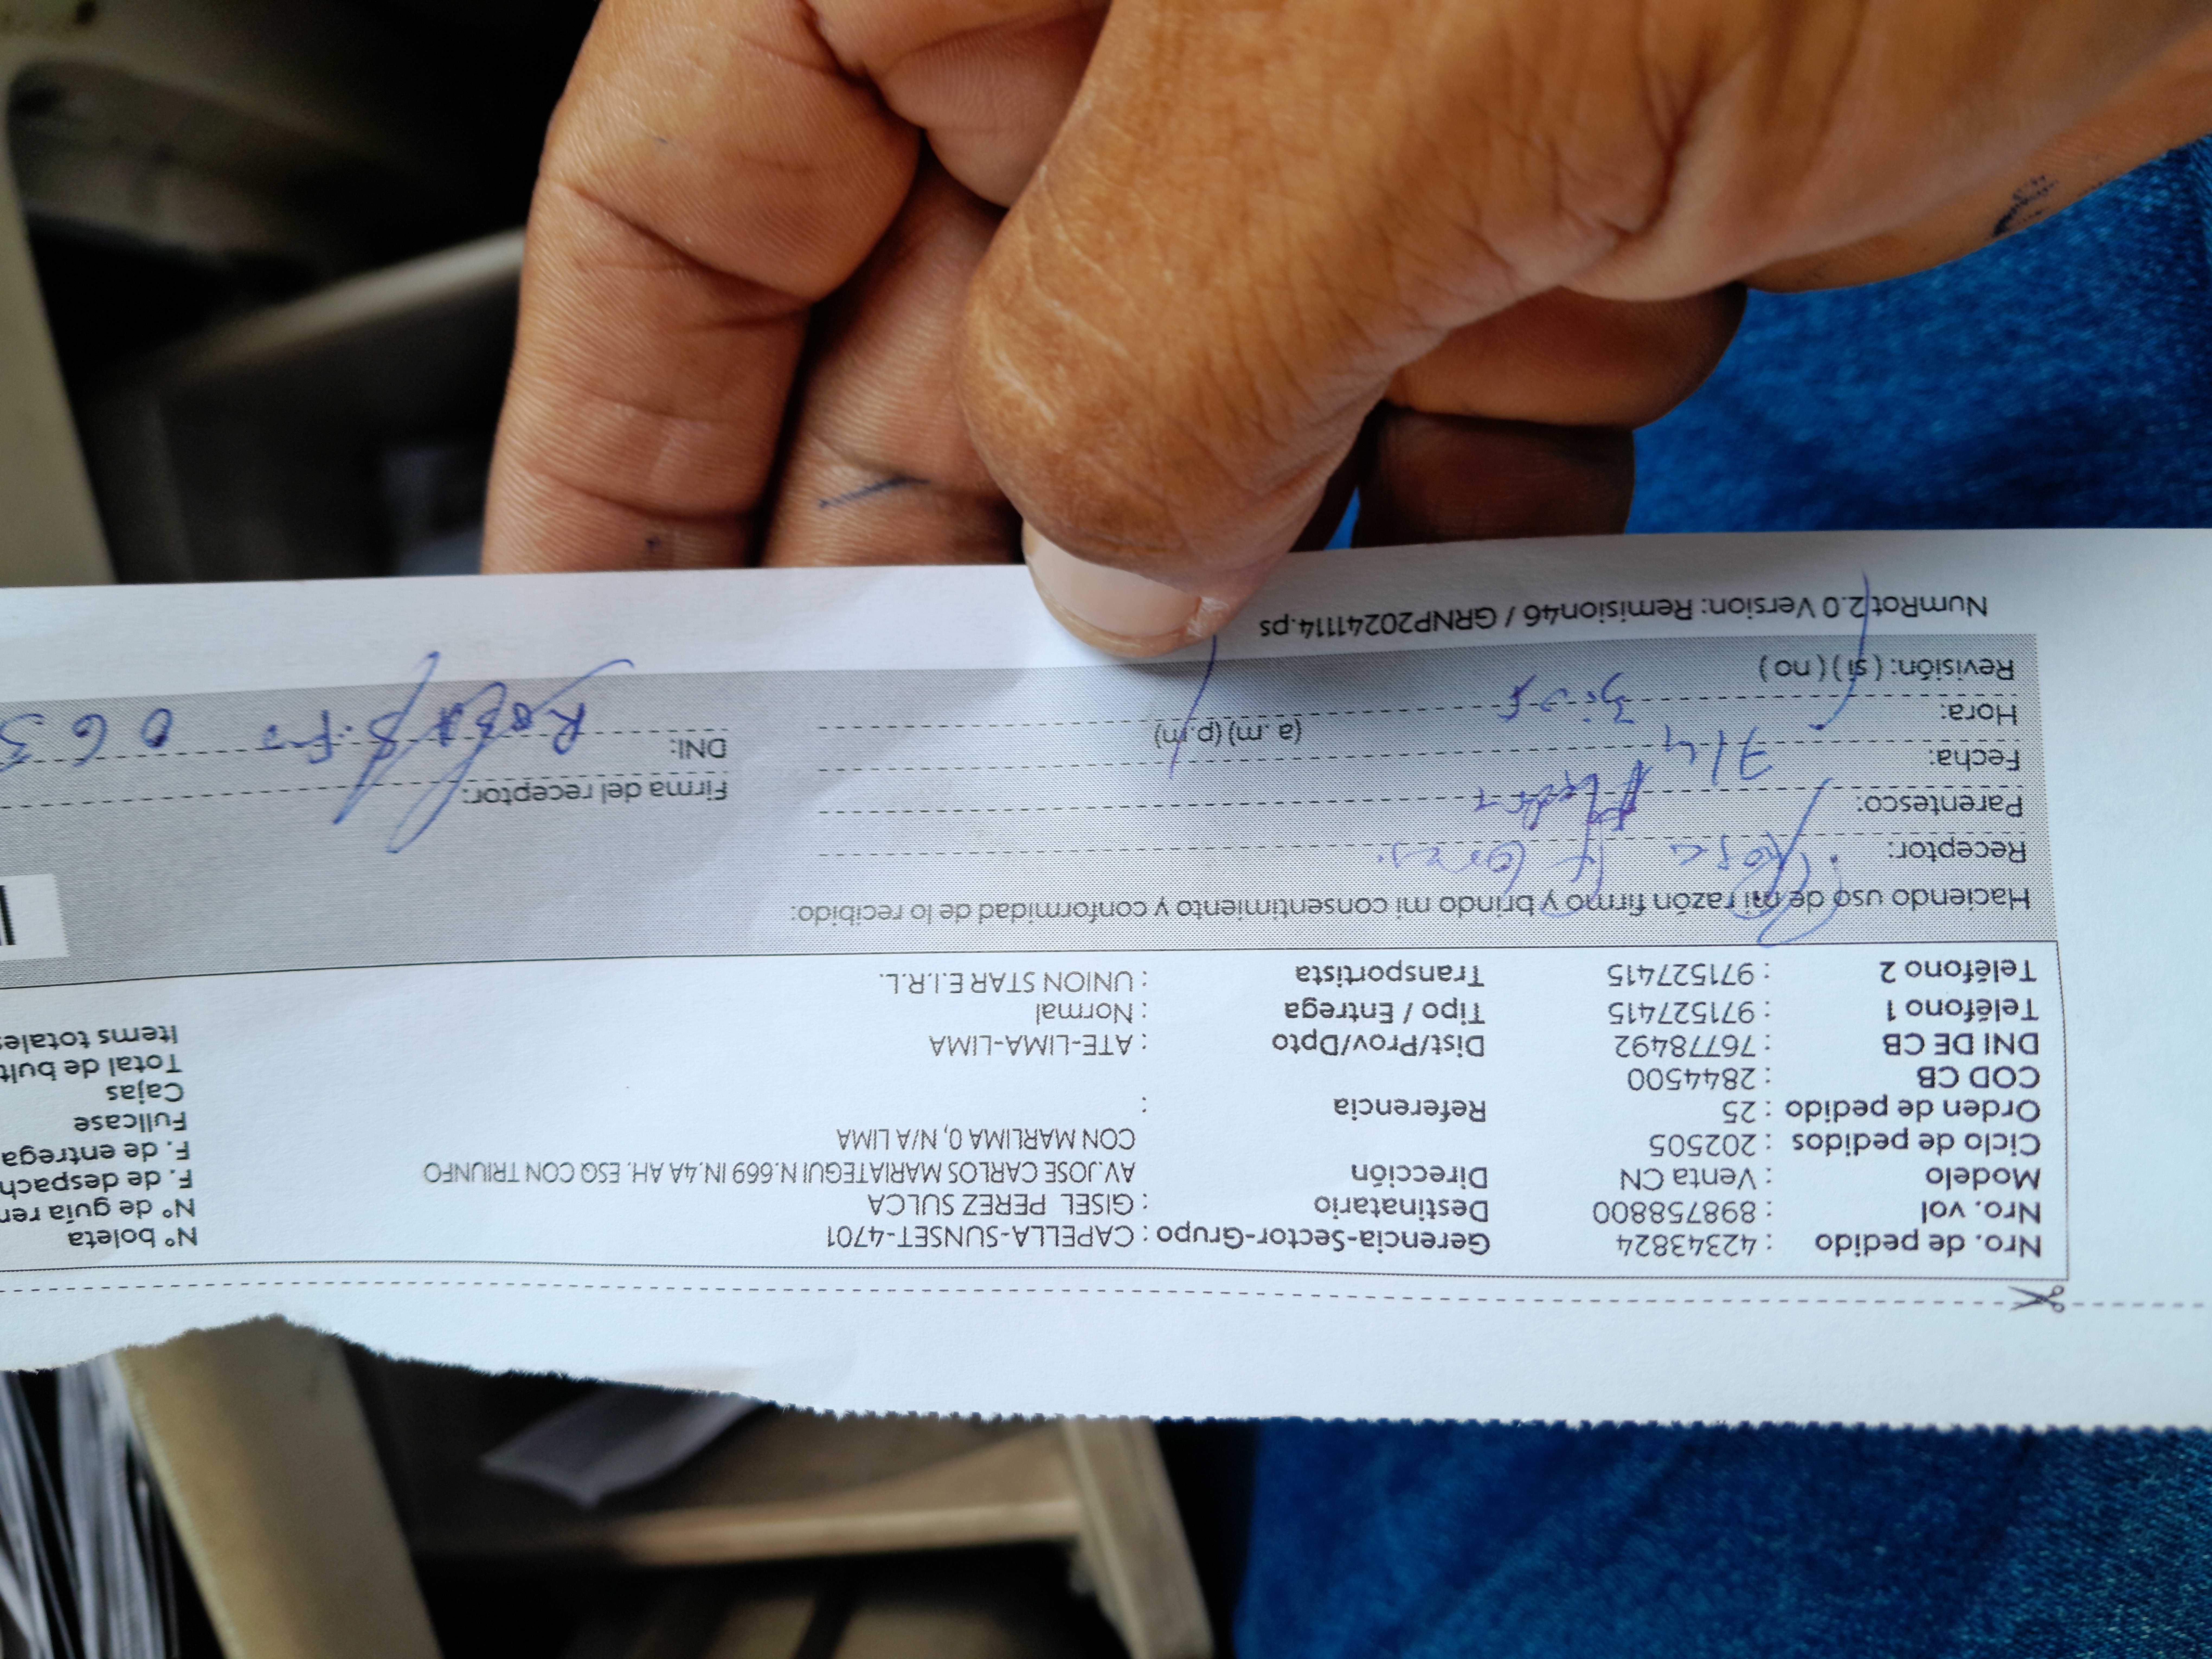 Nro. de pedido : 42343824 Gerencia-Sector-Grupo : CAPELLA-SUNSET-4701 N° boleta
Nro. vol : 898758800 Destinatario : GISEL PEREZ SULCA N° de guía rem
Modelo : Venta CN Dirección AV.JOSE CARLOS MARIATEGUI N.669 IN.4A AH. ESQ CON TRIUNFO F. de despach
Ciclo de pedidos : 202505 CON MARLIMA 0, N/A LIMA F. de entrega
Orden de pedido : 25 Referencia : Fullcase
COD CB : 2844500 Cajas
DNI DE CB : 76778492 Dist/Prov/Dpto : ATE-LIMA-LIMA Total de bult
Teléfono 1 : 971527415 Tipo / Entrega : Normal Items totales
Teléfono 2 : 971527415 Transportista : UNION STAR E.I.R.L.
Haciendo uso de mi razón firmo y brindo mi consentimiento y conformidad de lo recibido:
Receptor: Rosa
Parentesco: Firma del receptor:
Fecha: 7/4 DNI: 0 6 3
Hora: (a .m) (p.m)
Revisión: ( si ) ( no )
NumRot 2.0 Version: Remision46 / GRNP20241114.ps